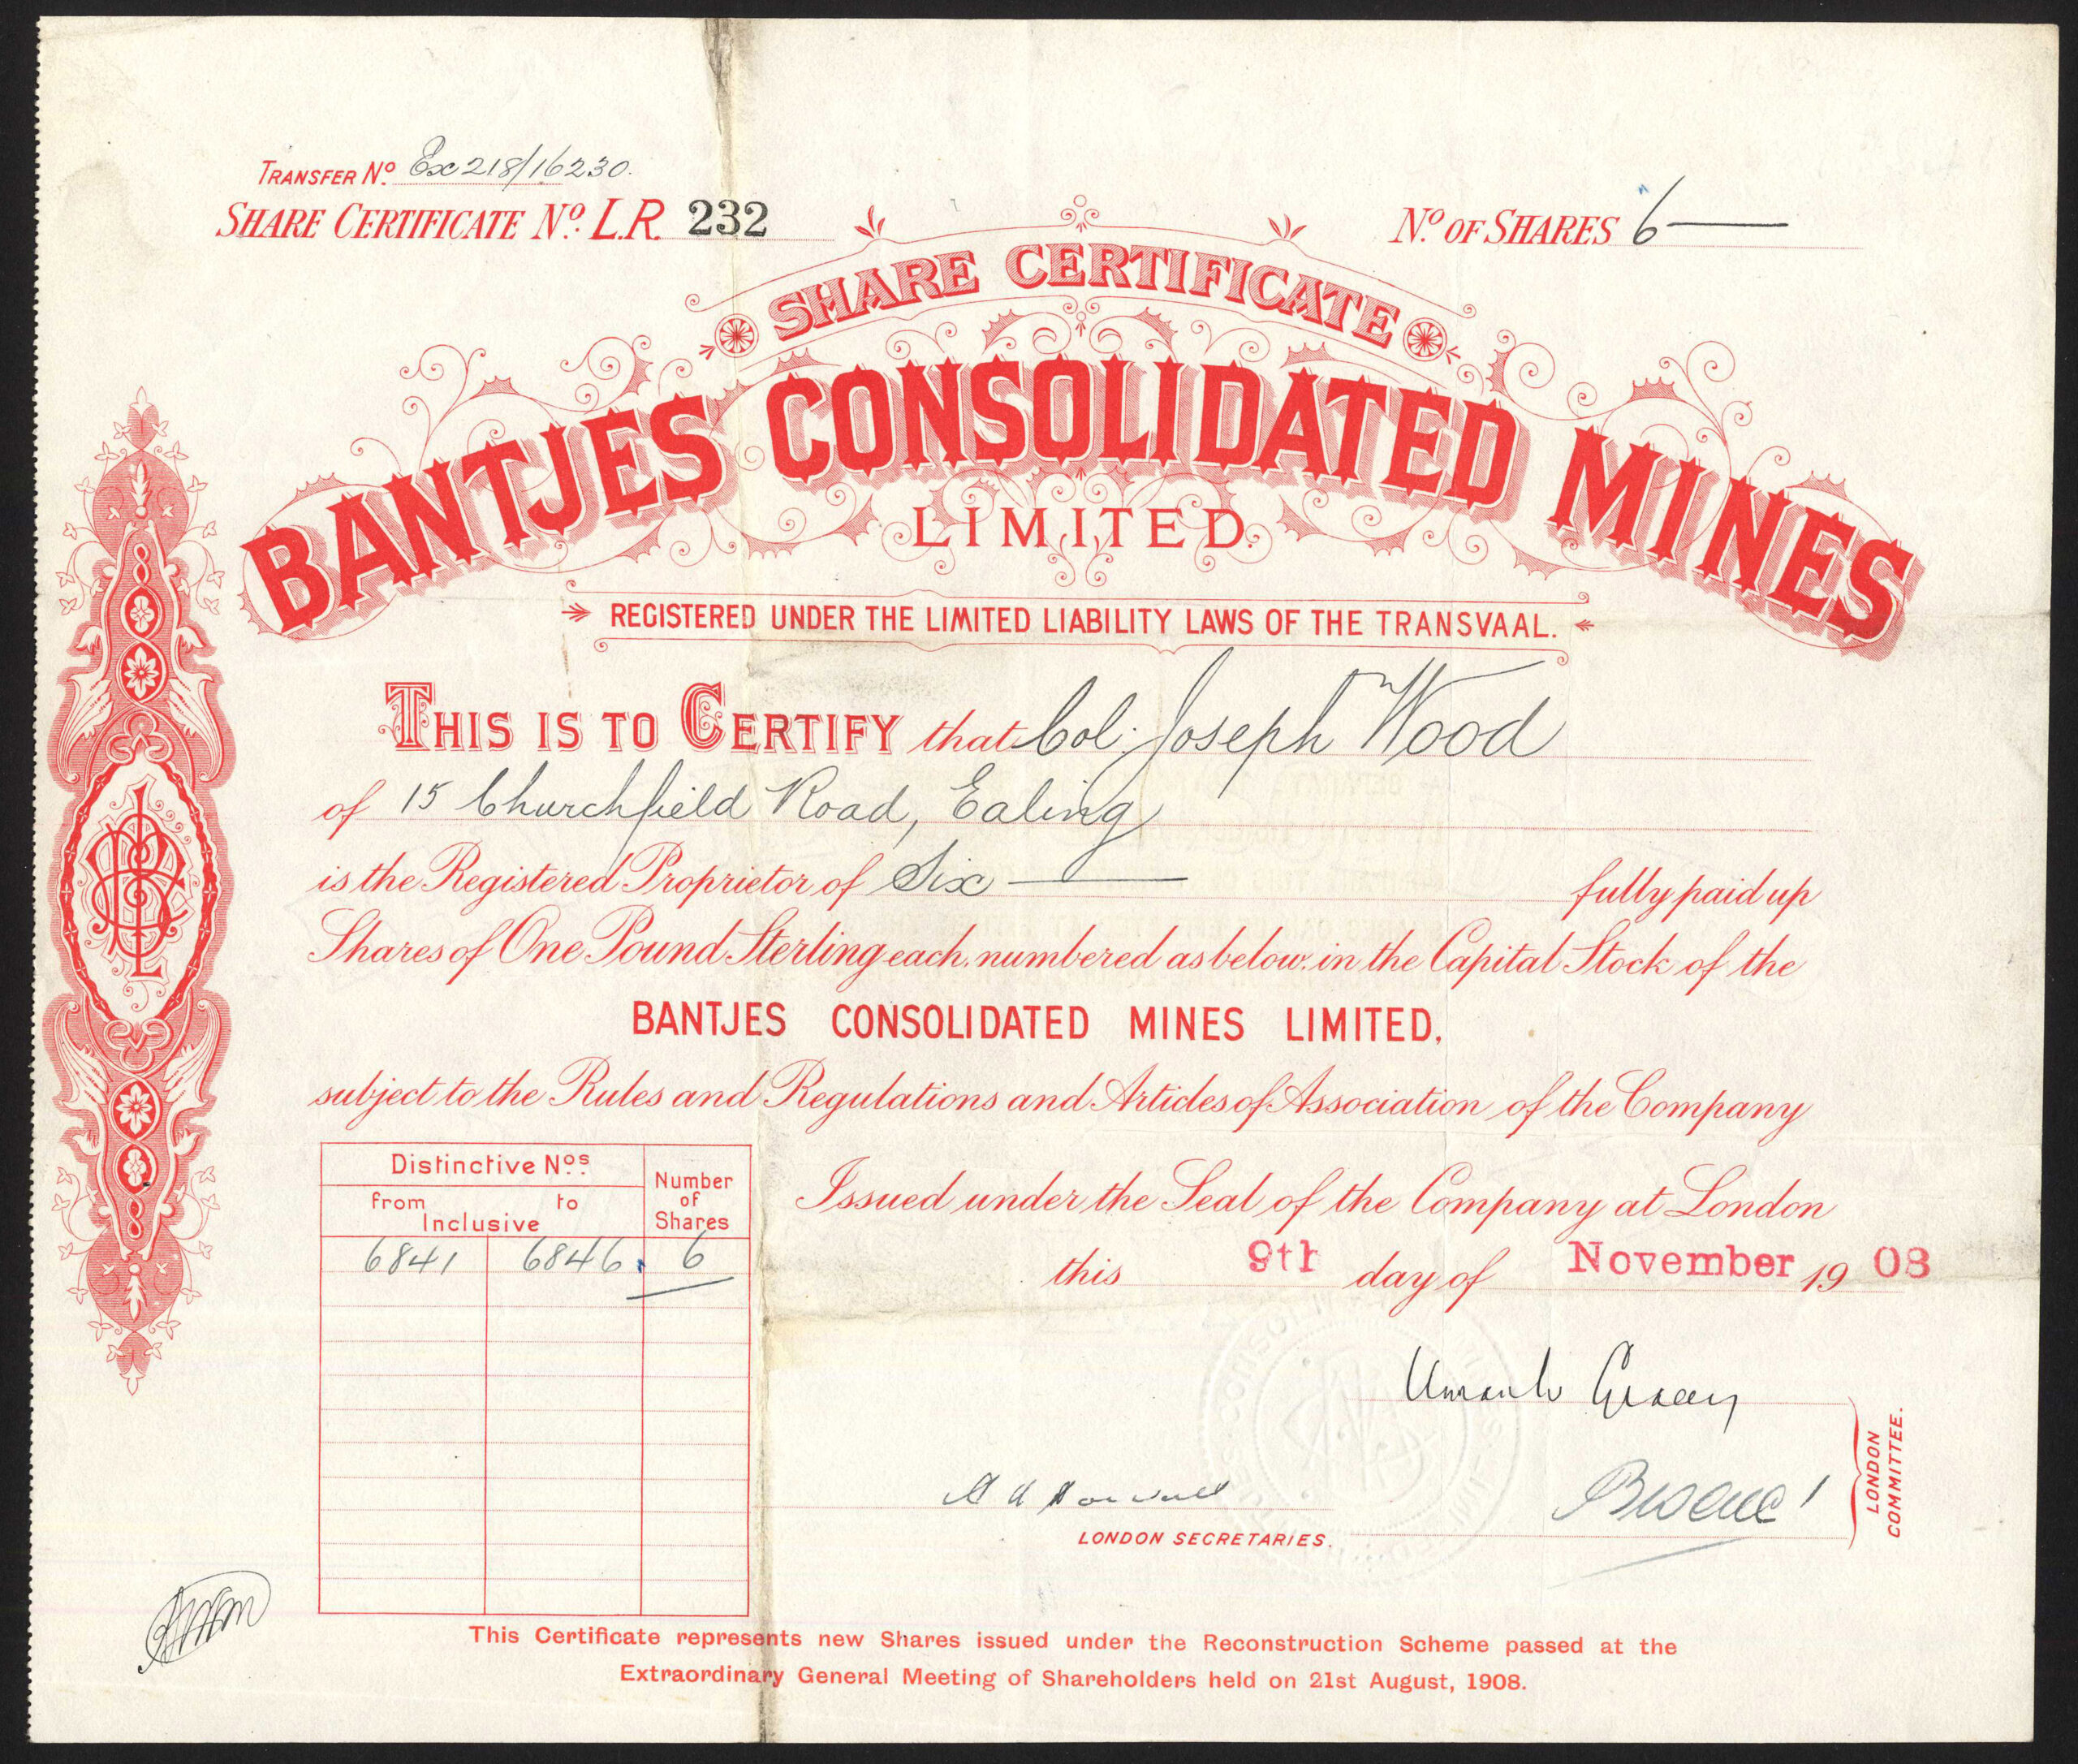 TRANSFER No. Ex 218/16230.
SHARE CERTIFICATE No. L.R. 232
No. OF SHARES 6
SHARE CERTIFICATE
BANTJES CONSOLIDATED MINES
LIMITED.
REGISTERED UNDER THE LIMITED LIABILITY LAWS OF THE TRANSVAAL.
THIS IS TO CERTIFY that Col: Joseph Wood
of 15 Churchfield Road, Ealing
is the Registered Proprietor of Six fully paid up
Shares of One Pound Sterling each, numbered as below, in the Capital Stock of the
BANTJES CONSOLIDATED MINES LIMITED,
subject to the Rules and Regulations and Articles of Association of the Company
Distinctive Nos.
Number of Shares
from to
Inclusive
6841 6846 6
Issued under the Seal of the Company at London
this 9th day of November 1908
LONDON COMMITTEE.
LONDON SECRETARIES.
This Certificate represents new Shares issued under the Reconstruction Scheme passed at the
Extraordinary General Meeting of Shareholders held on 21st August, 1908.